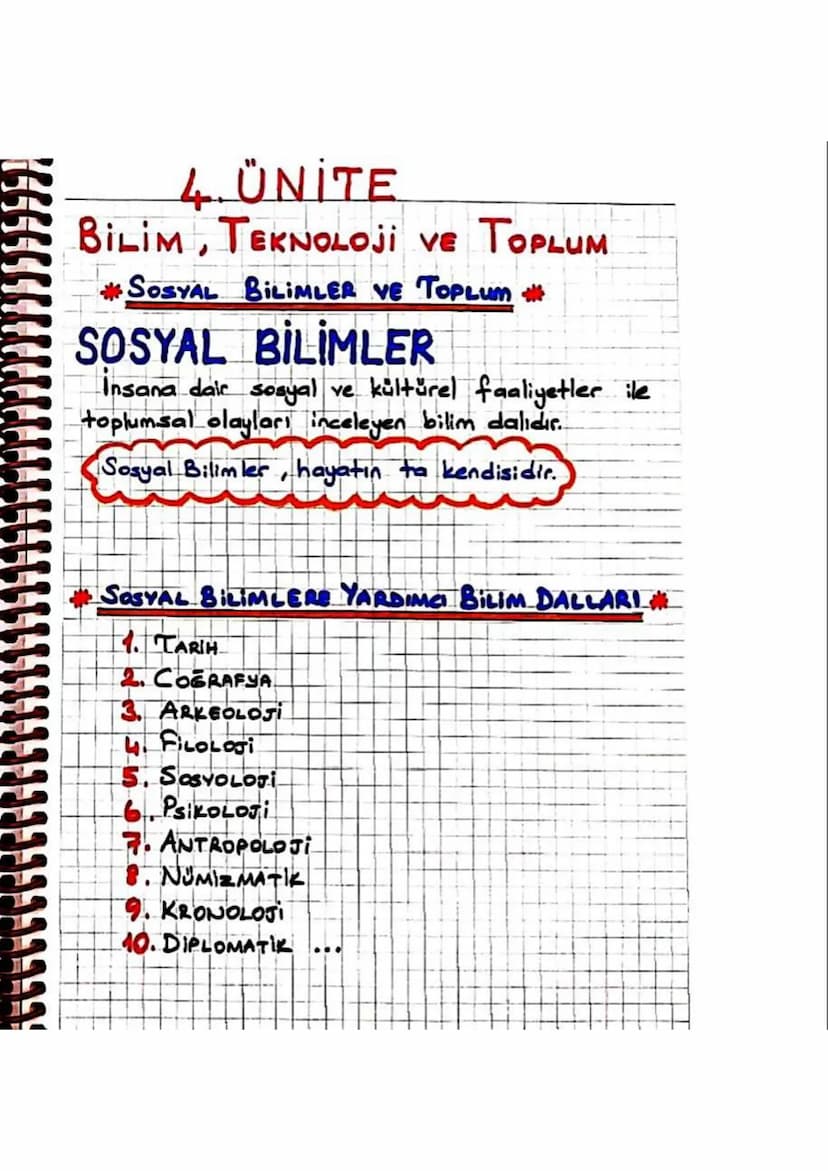 4. ÜNİTE
BİLİM, TEKNOLOJİ VE TOPLUM
* SOSYAL BİLİMLER VE TOPLUM *
SOSYAL BİLİMLER
İnsana dair sosyal ve kültürel faaliyetler ile
toplumsal olayları inceleyen bilim dalıdır.
Sosyal Bilimler, hayatın ta kendisidir.
* SOSYAL BİLİMLERE YARDIMCI BİLİM DALLARI *
1. TARİH
2. COĞRAFYA
3. ARKEOLOJİ
4. FİLOLOJİ
5. SOSYOLOJİ
6. PSİKOLOJİ
7. ANTROPOLOJİ
8. NÜMİZMATİK
9. KRONOLOJİ
10. DİPLOMATİK ...